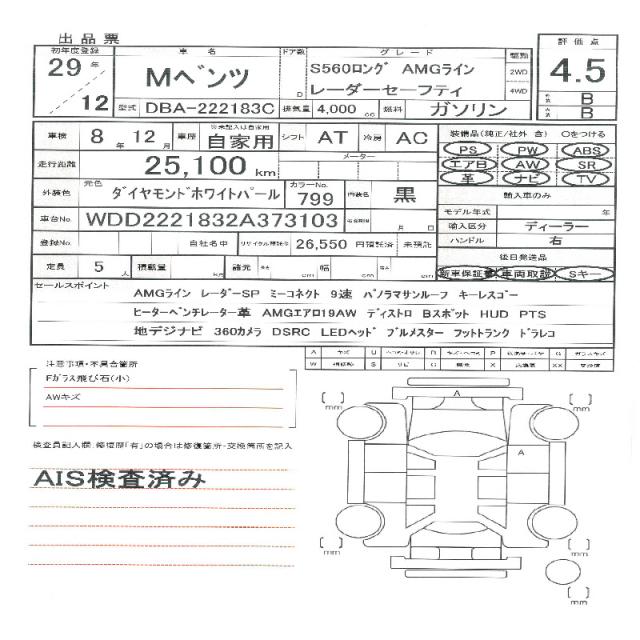 出品票
初年度登録 車名 ドア数 グレード 駆動 評価点
29年 Mベンツ S560ロング AMGライン 2WD 4.5
/12 D レーダーセーフティ 4WD B
型式 DBA-222183C 排気量 4,000 cc 燃料 ガソリン B
車検 8年 12月 車歴 ※未記入は自家用 自家用 シフト AT 冷房 AC 装備品(純正/社外 含) ○をつける
PS PW ABS
走行距離 25,100 km メーター エアB AW SR
革 ナビ TV
外装色 元色 ダイヤモンドホワイトパール カラーNo. 799 内装色 黒 輸入車のみ
モデル年式 年
車台No. WDD2221832A373103 月 日 輸入区分 ディーラー
登録No. 自社名中 リサイクル預託金 26,550 円預託済 未預託 ハンドル 右
定員 5人 積載量 諸元 cm 幅 cm cm 後日発送品
新車保証書 車両取説 Sキー
セールスポイント
AMGライン レーダーSP ミーコネクト 9速 パノラマサンルーフ キーレスゴー
ヒーターベンチレター革 AMGエアロ19AW ディストロ Bスポット HUD PTS
地デジナビ 360カメラ DSRC LEDヘッド ブルメスター フットトランク ドラレコ
注意事項・不具合箇所
Fガラス飛び石(小)
AWキズ
検査員記入欄:修復歴「有」の場合は修復箇所・交換箇所を記入
AIS検査済み
A
A
mm
mm
mm
mm
mm